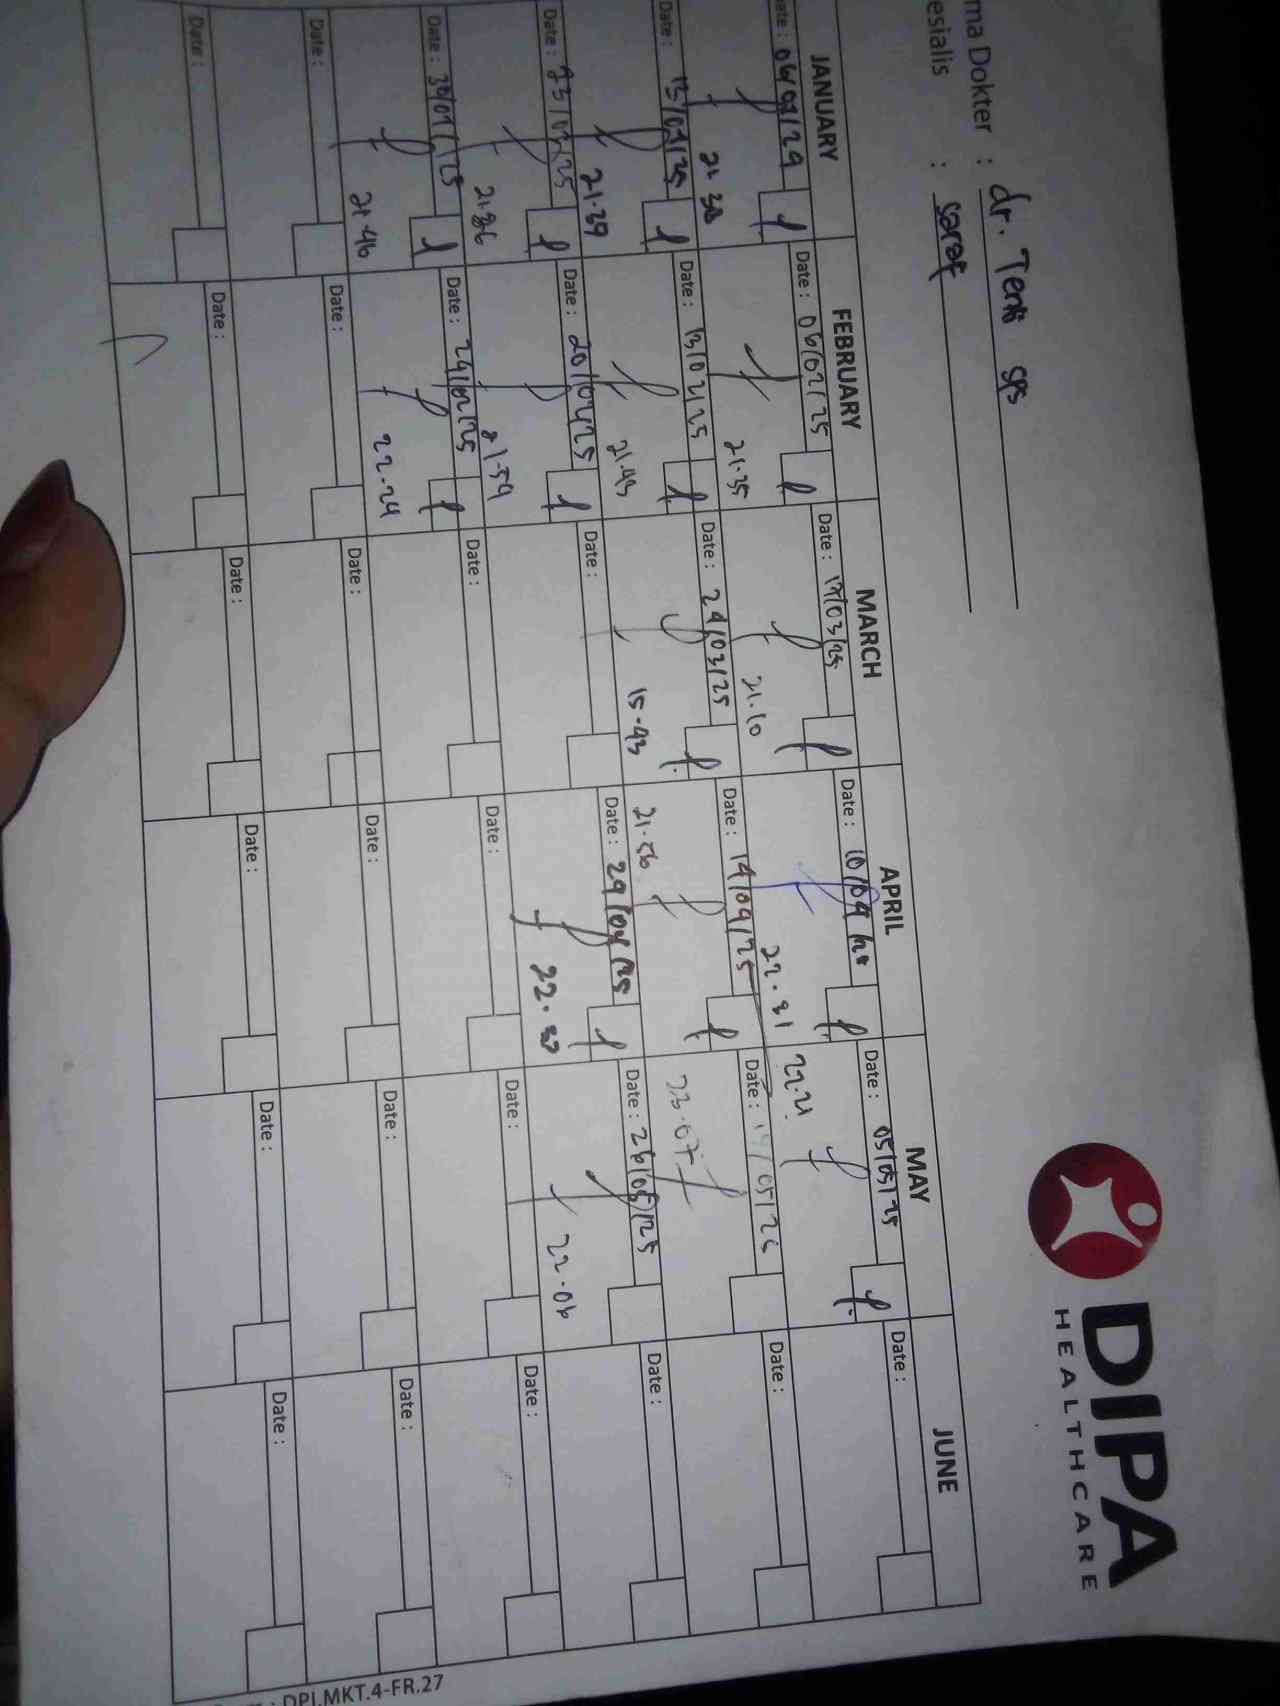 DIPA
HEALTHCARE
ma Dokter : dr. Tenti sps
esialis : saraf
JANUARY FEBRUARY MARCH APRIL MAY JUNE
ate : 06/01/29 Date : 06/02/25 Date : 17/03/25 Date : 10/04/25 Date : 05/05/25 Date :
21.38 21.35 21.10 22.31 22.21
Date : 13/01/25 Date : 13/02/25 Date : 24/03/25 Date : 14/04/25 Date : 19/05/25 Date :
21.39 21.43 15.43 21.56 23.07
Date : 23/01/25 Date : 20/02/25 Date : Date : 29/04/25 Date : 26/05/25 Date :
21.36 21.59 22.30 22.06
Date : 30/01/25 Date : 24/02/25 Date : Date : Date : Date :
21.46 22.24
Date : Date : Date : Date : Date : Date :
Date : Date : Date : Date : Date : Date :
: DPI.MKT.4-FR.27